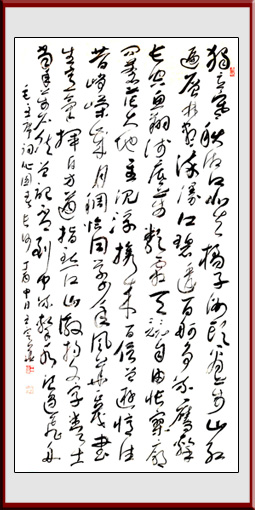 独立寒秋湘江北去橘子洲头看万山红
遍层林尽染漫江碧透百舸争流鹰击
长空鱼翔浅底万类霜天竞自由怅寥廓
问苍茫大地谁主沉浮携来百侣曾游忆往
昔峥嵘岁月稠恰同学少年风华正茂书
生意气挥斥方遒指点江山激扬文字粪土
当年万户侯曾记否到中流击水浪遏飞舟
毛主席词沁园春长沙